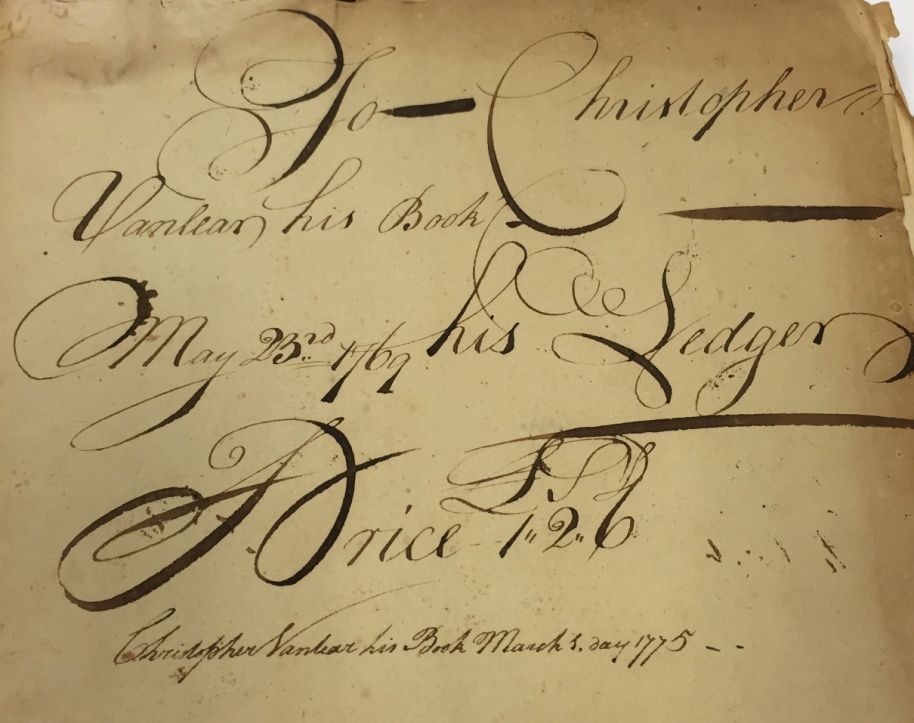 To Christopher
Vanlear his Book
May 23rd 1769 his Ledger
£ S d
Price 1" 2" 6
Christopher Vanlear his Book March 5. day 1775 - -